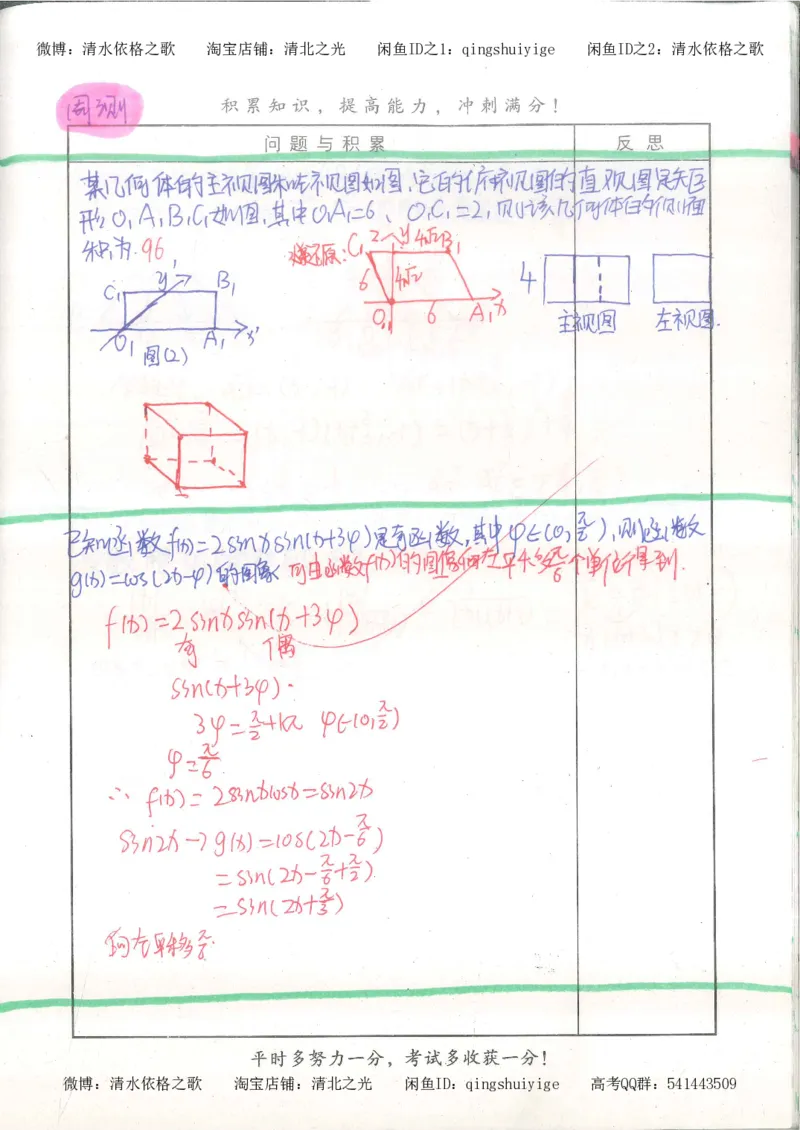 微博：清水依格之歌 淘宝店铺：清北之光 闲鱼ID之1：qingshuiyige 闲鱼ID之2：清水依格之歌
周测
积累知识，提高能力，冲刺满分！
问题与积累 反思
某几何体的主视图和左视图如图，它的俯视图的直观图是矩
形O₁A₁B₁C₁如图，其中O₁A₁=6、O₁C₁=2，则该几何体的侧面
积为 96，
还原：C₁ 2 y 4√2 B₁
6 4√2
O₁ 6 A₁ x
C₁ y B₁
O₁ A₁ x'
图(2)
4
主视图 左视图.
已知函数f(x)=2sinxsin(x+3φ)是奇函数，其中φ∈(0,π/2)，则函数
g(x)=cos(2x-φ)的图象 可由函数f(x)的图像向左平移π/6个单位得到.
f(x)=2sinxsin(x+3φ)
奇 偶
sin(x+3φ).
3φ=π/2+kπ φ∈(0,π/2)
φ=π/6
∴ f(x)=2sinxcosx=sin2x
sin2x→g(x)=cos(2x-π/6)
=sin(2x-π/6+π/2)
=sin(2x+π/3)
向左平移π/6.
平时多努力一分，考试多收获一分！
微博：清水依格之歌 淘宝店铺：清北之光 闲鱼ID：qingshuiyige 高考QQ群：541443509